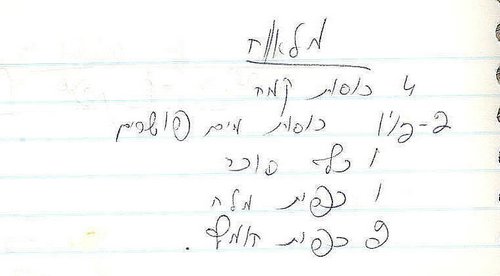 מלאווח
4 כוסות קמח
1 1/2-2 כוסות מים פושרים
1 כף סוכר
1 כפית מלח
2 כפית חומץ.